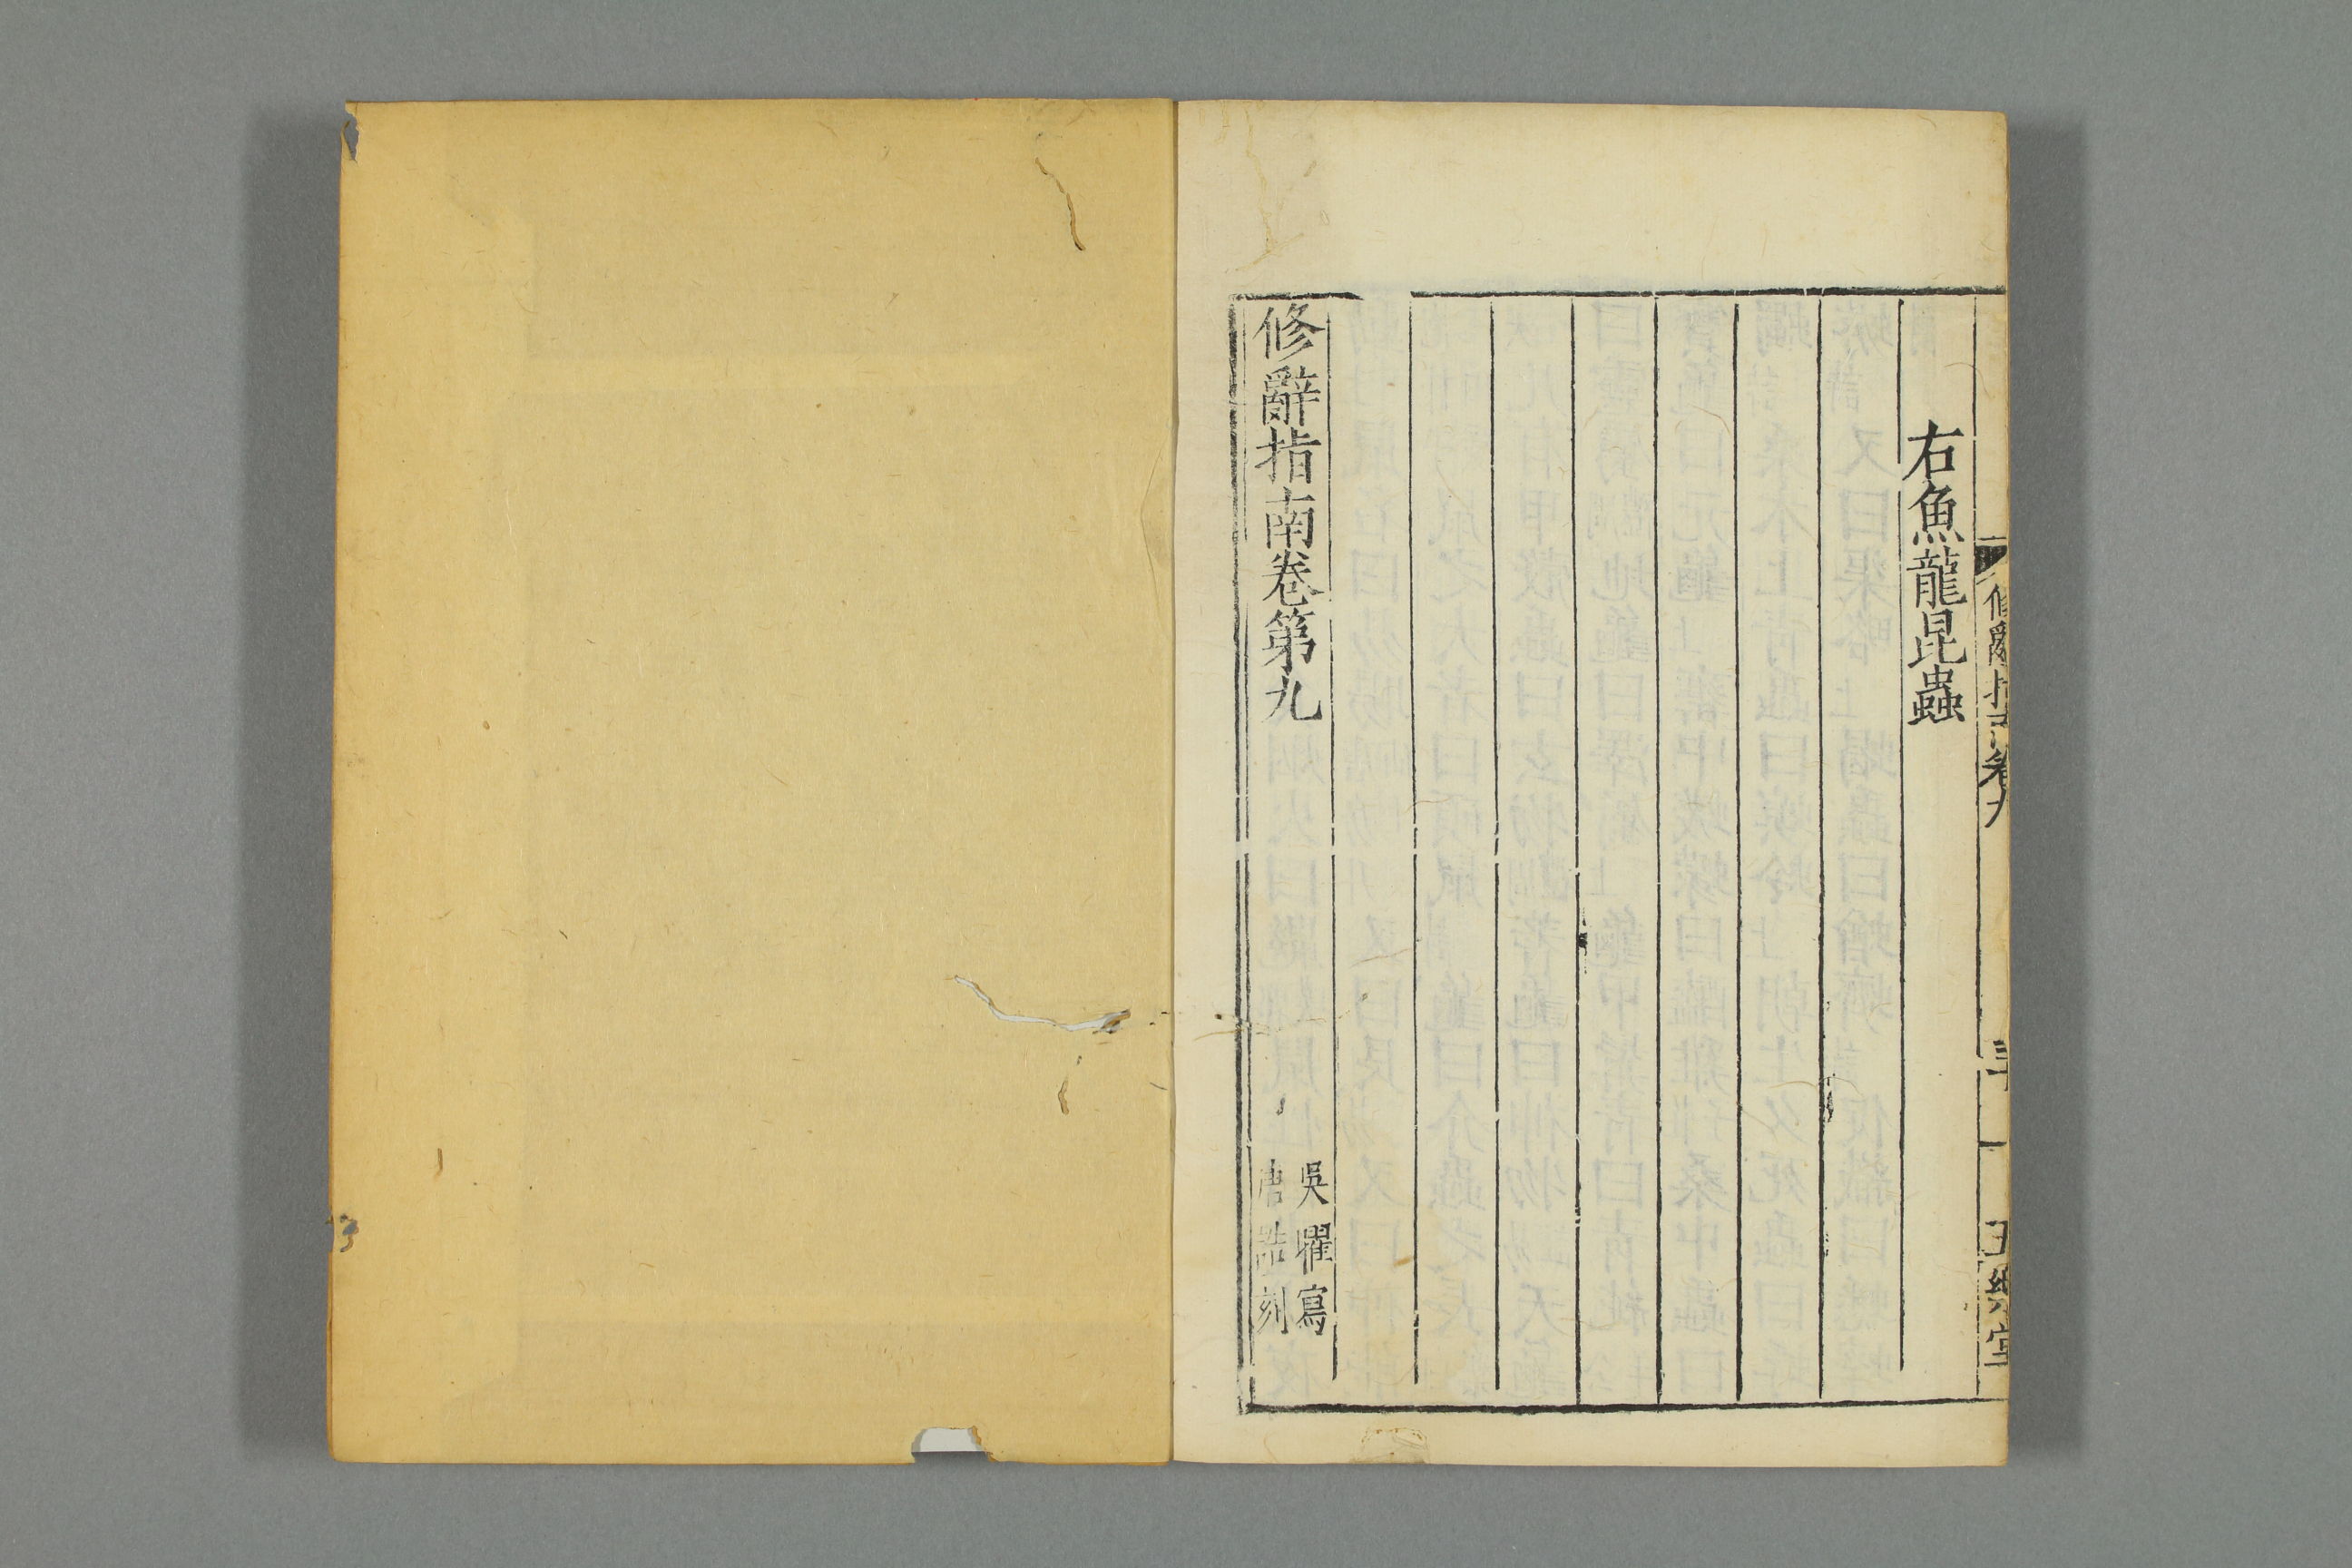 右魚龍昆蟲
修辭指南卷第九
吳曜寫
唐誥刻
修辭指南卷九
三十
五樂堂